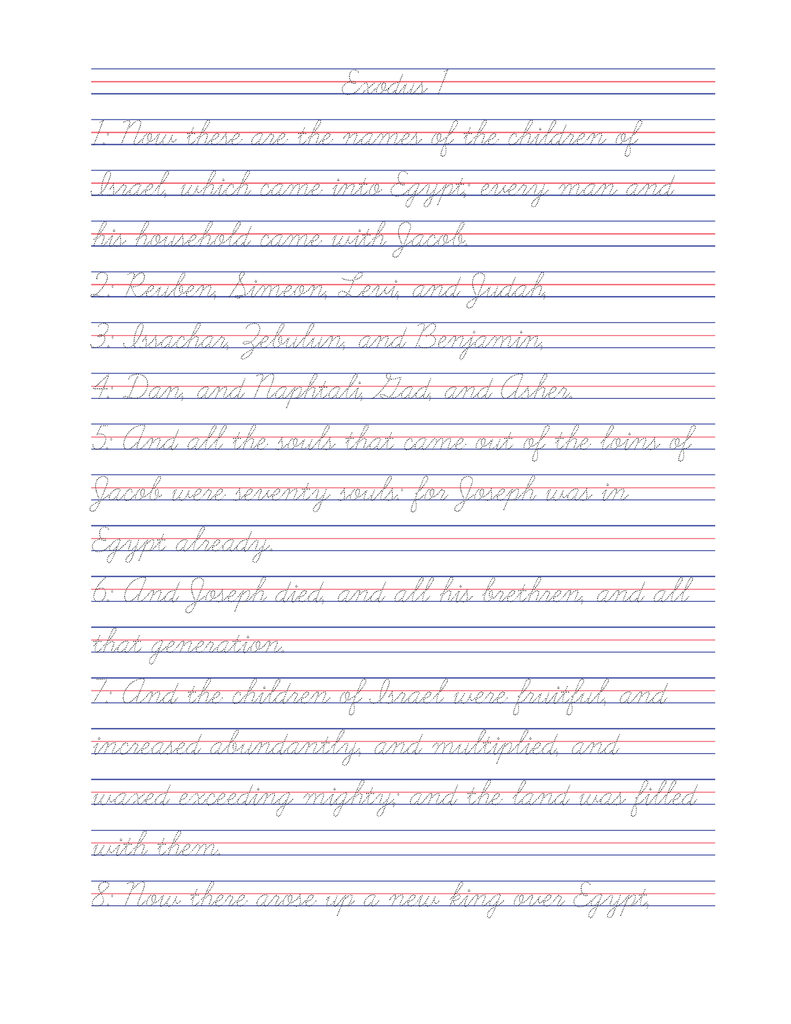 Exodus 1
1: Now these are the names of the children of
Israel, which came into Egypt; every man and
his household came with Jacob.
2: Reuben, Simeon, Levi, and Judah,
3: Issachar, Zebulun, and Benjamin,
4: Dan, and Naphtali, Gad, and Asher.
5: And all the souls that came out of the loins of
Jacob were seventy souls: for Joseph was in
Egypt already.
6: And Joseph died, and all his brethren, and all
that generation.
7: And the children of Israel were fruitful, and
increased abundantly, and multiplied, and
waxed exceeding mighty; and the land was filled
with them.
8: Now there arose up a new king over Egypt,